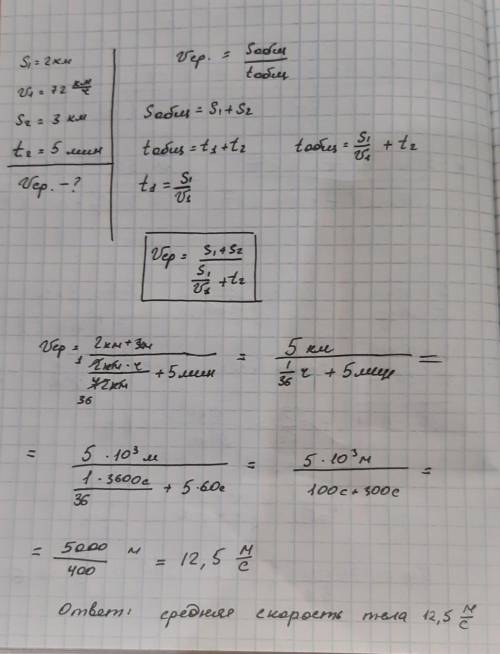 S₁ = 2 км
υ₁ = 72 км/ч
S₂ = 3 км
t₂ = 5 мин
υср. - ?
υср. = Sобщ / tобщ
Sобщ = S₁ + S₂
tобщ = t₁ + t₂
tобщ = S₁/υ₁ + t₂
t₁ = S₁/υ₁
υср = (S₁ + S₂) / (S₁/υ₁ + t₂)
υср = (2 км + 3 км) / (1 2 км · ч / 72 км 36 + 5 мин) = 5 км / (1/36 ч + 5 мин) =
= 5 · 10³ м / (1 · 3600 с / 36 + 5 · 60 с) = 5 · 10³ м / (100 с + 300 с) =
= 5000/400 м = 12,5 м/с
Ответ: средняя скорость тела 12,5 м/с